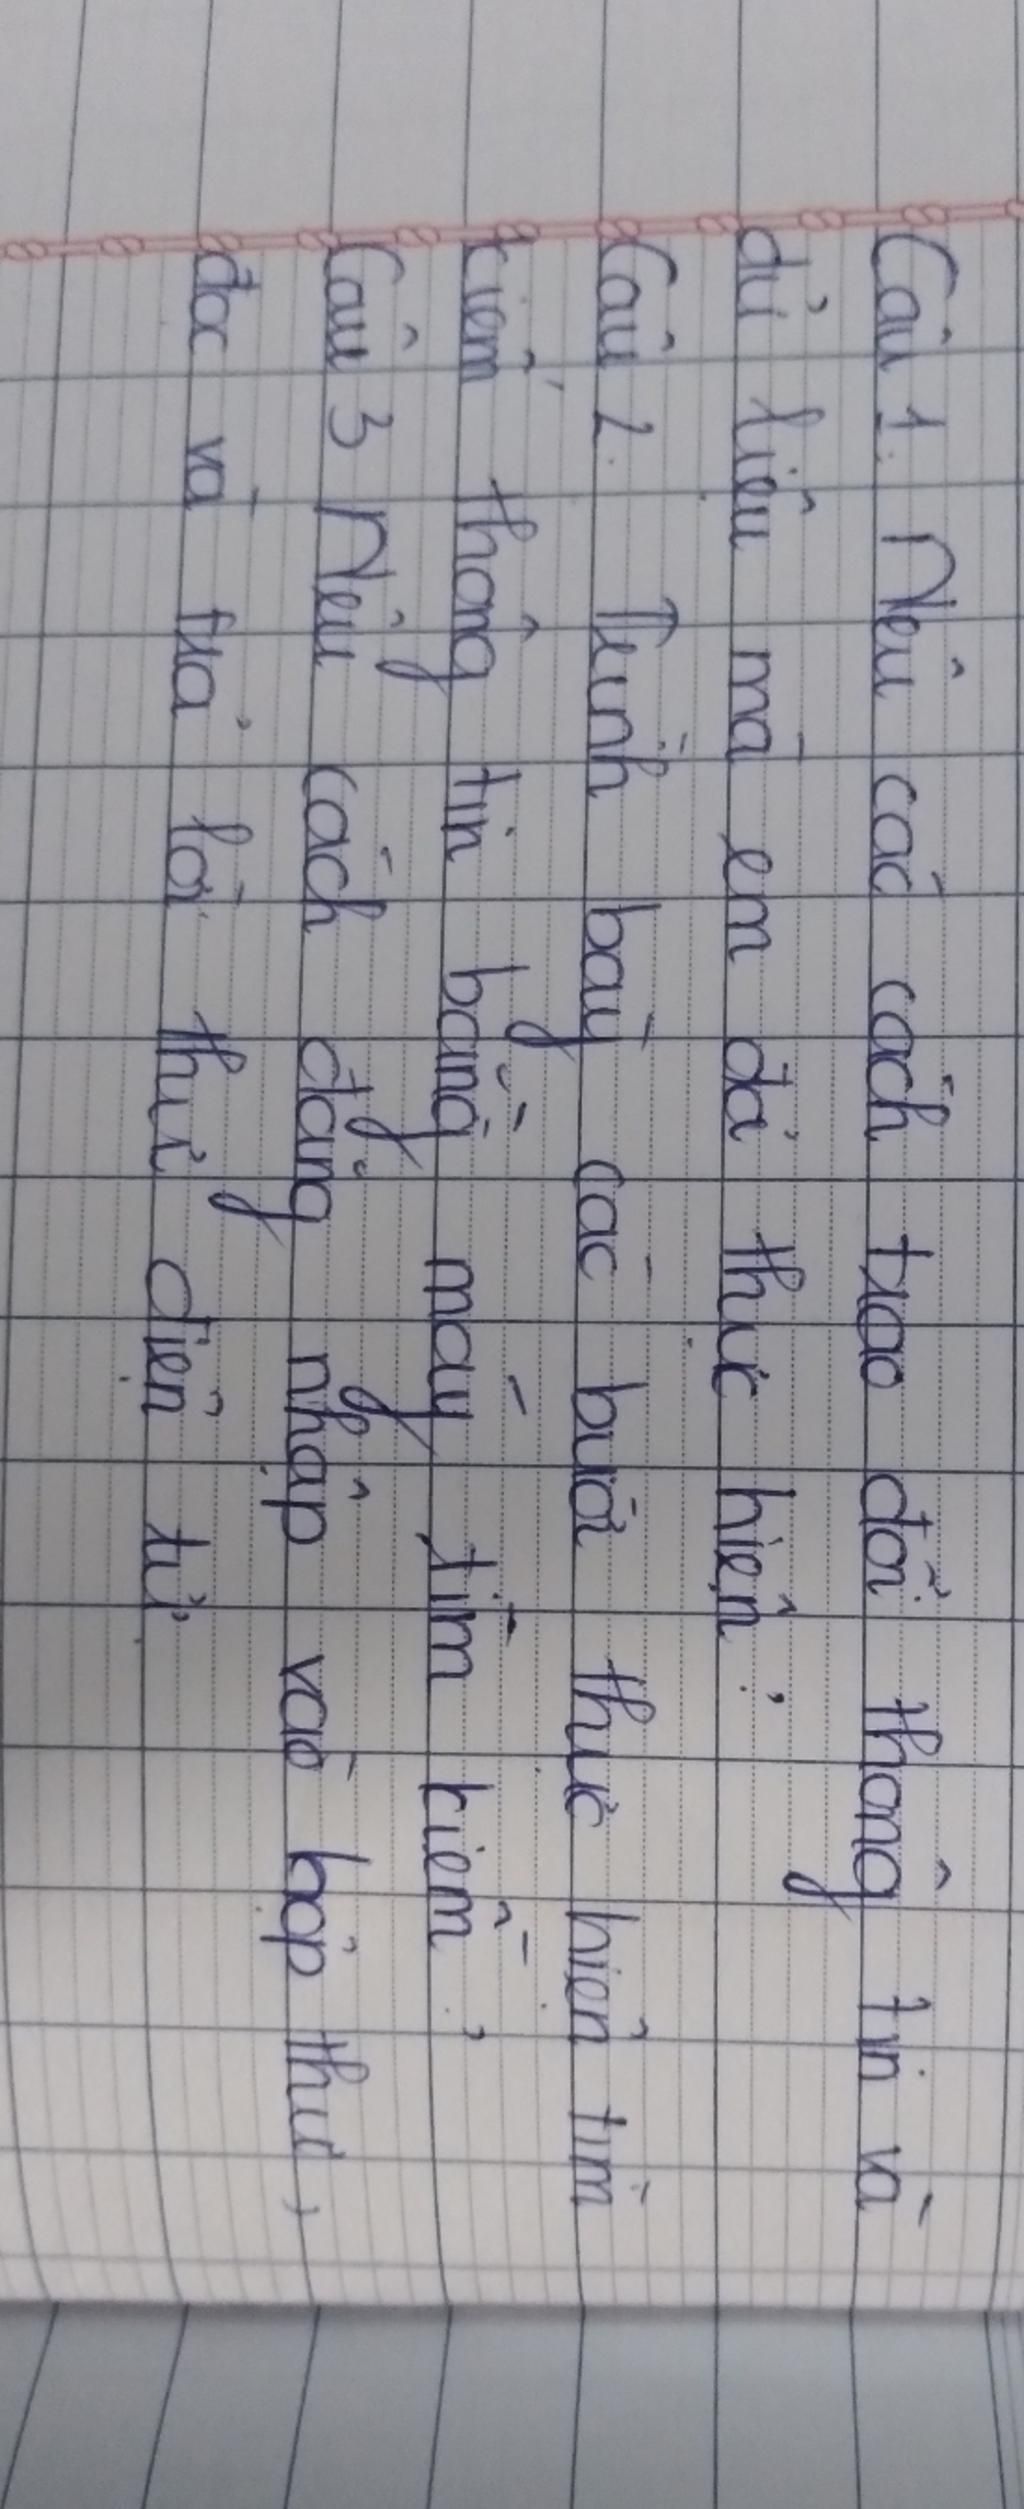 Câu 1. Nêu các cách trao đổi thông tin và
dữ liệu mà em đã thực hiện ?
Câu 2. Trình bày các bước thực hiện tìm
kiếm thông tin bằng máy tìm kiếm ?
Câu 3 Nêu cách đăng nhập vào hộp thư,
đọc và trả lời thư điện tử